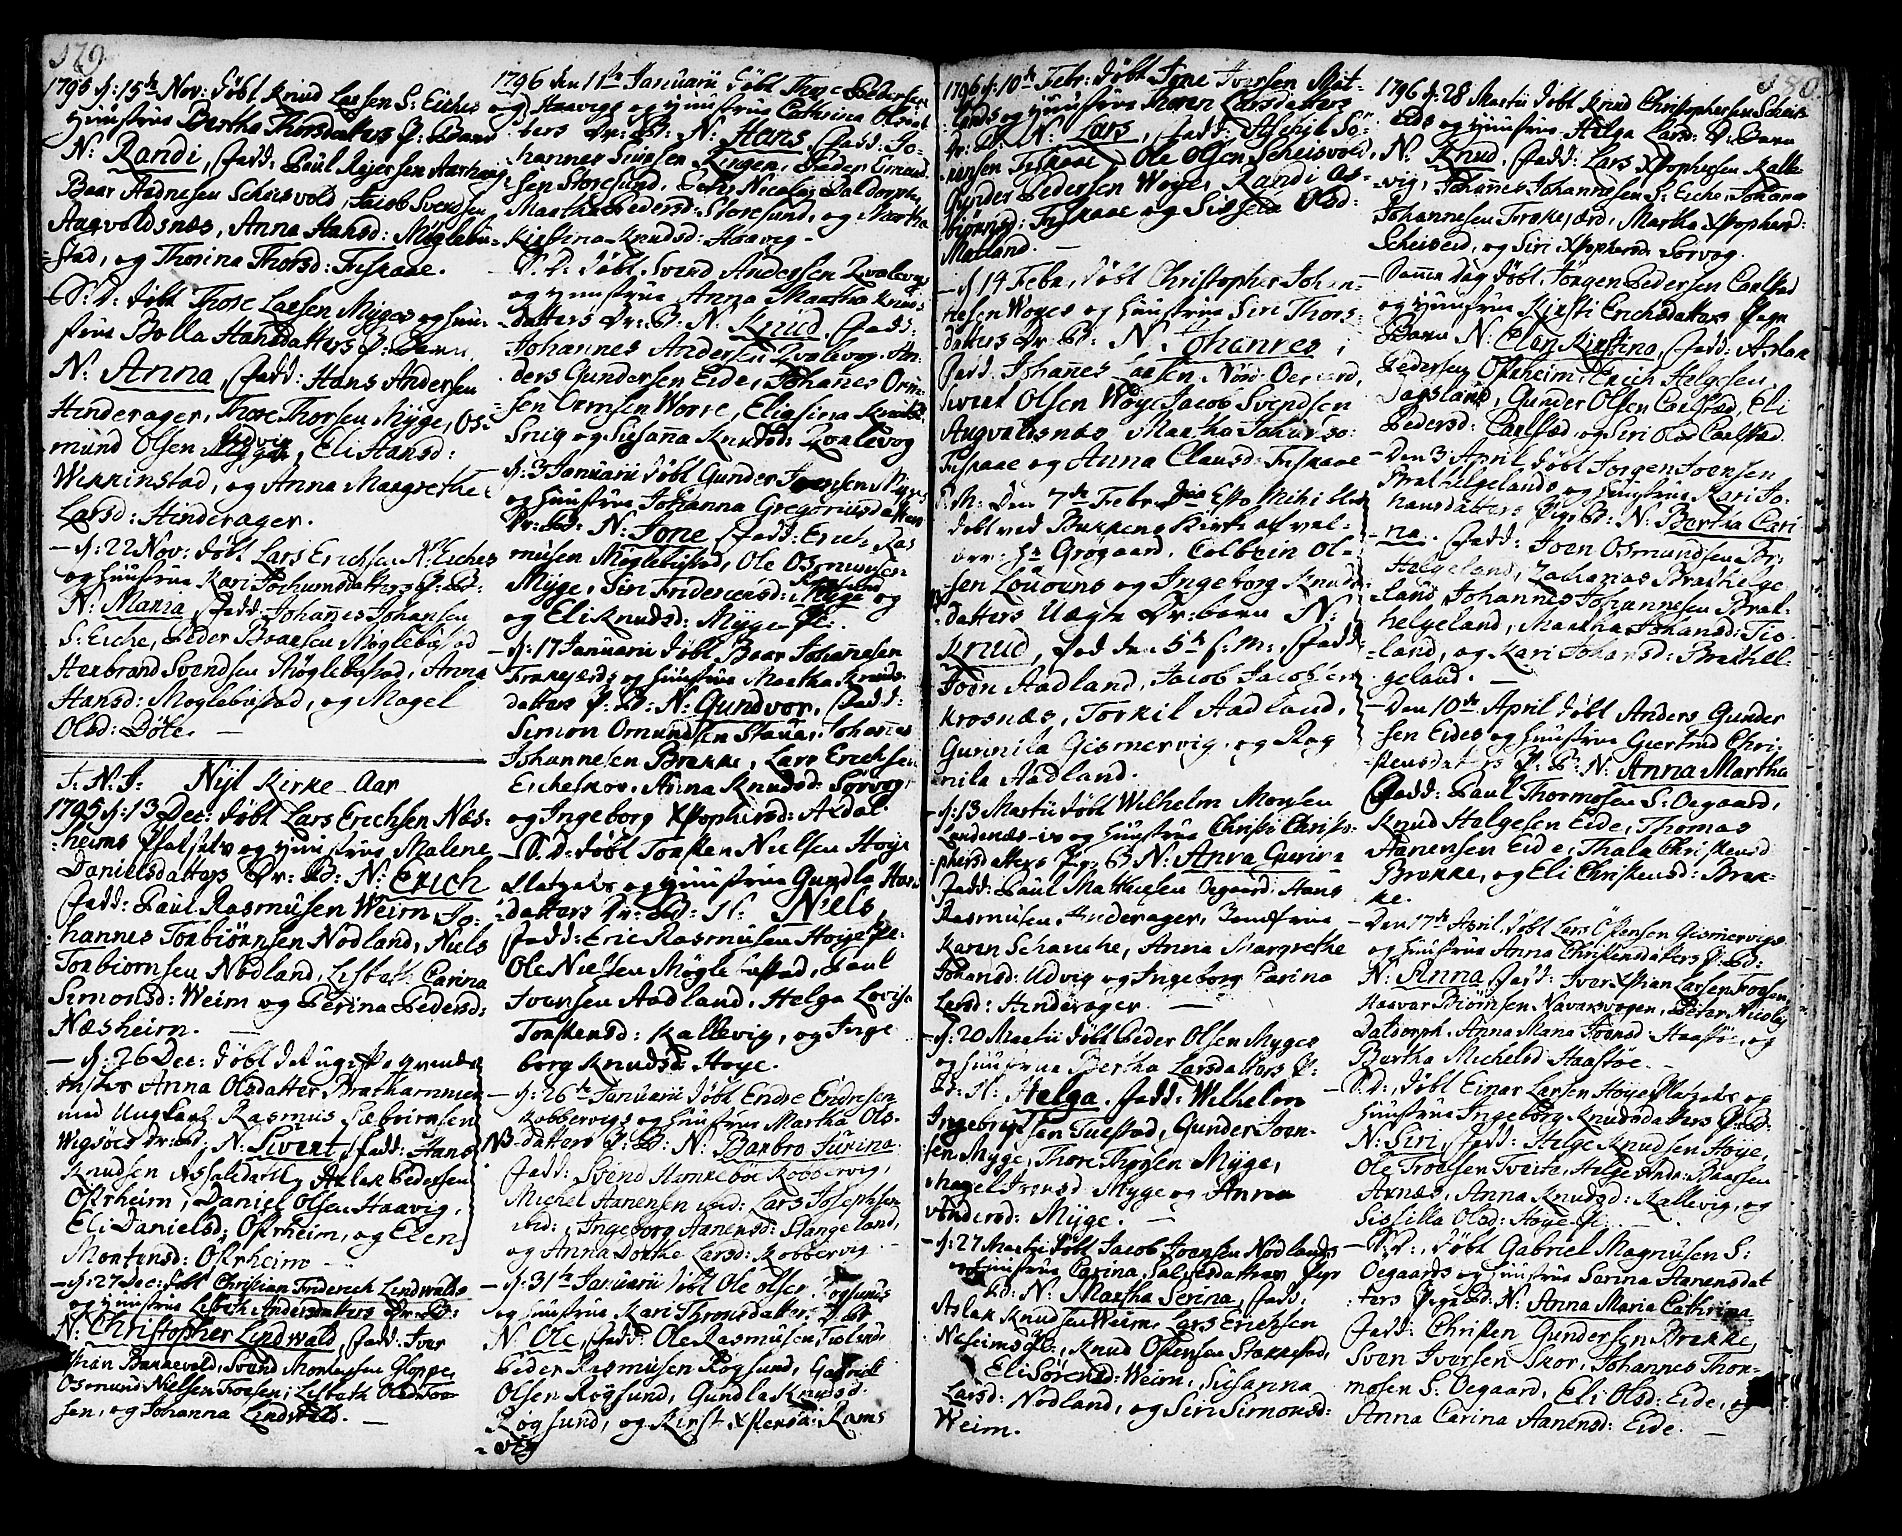 179.
1795 d: 15de Nov: døbt Knud Larsen S: Eiches
og Hustrue Bertha Thorsdatters P: Barn
N: Randi, Fadd: Paul Rejersen Aarhoug
Baar Aadnesen Scheisvold, Jacob Svendsen
Augvoldsnæs, Anna Hansd: Møglebu-
stad, og Thorina Thorsd: Fiskaae.
S: D: døbt Thore Larsen Myges og Huu-
strue Bolla Hansdatters P: Barn,
N: Anna, Fadd: Hans Andersen
Hinderager, Thore Thorsen Myge, Os-
mund Olsen Udvig, Eli Hansd:
Wikkinstad, og Anna Margrethe
Larsd: Hinderager.
- d: 22 Nov: døbt Lars Erichsen N: Eiches
og Huustrue Kari Jochumsdatters P: B:
N: Maria, Fadd: Johannes Johansen
S: Eiche, Peder Baarsen Møglebustad
Havbrand Svendsen Møglebustad, Anna
Hansd: Møglebustad, og Magel
Olsd: Døle. -
I. N. J. Nyt Kirke-Aar
1795 d: 13 Dec: døbt Lars Erichsen Næs-
heims og Huustrue Malene
Danielsdatters Dr: B: N: Erich
Fadd: Paul Rasmusen Weim, Jo-
hannes Torbiørnsen Nodland, Niels
Torbiørnsen Nodland, Lisbeth Carina
Simonsd: Weim og Perina Peders:
Næsheim. -
- d: 26 Dec: døbt det ugifte qvinde
Anna Olsdatter Brathammer
med Rasmus Sæbiørnsen
Wigsøes Dr: B: N: Sivert, Fadd: Hans
Knudsen Assaldal, Aslak Pedersen
Ostrheim, Daniel Olsen Haavig,
Eli Danielsd: Ostrheim, og Elen
Mortensd: Ostrheim -
- d: 27 Dec: døbt Christian Friderich Lindwalds
og Huustrue Lisbeth Andersdatters Dr: B:
N: Christopher Lindwald, Fadd: Iver
Xstian Bannevold, Svend Mortensen Gloppe,
Osmund Nielsen Troesen, Lisbeth Olsd Troe-
sen, og Johanna Lindwald. -
1796 den 11te Januarii døbt Thore Pedersen
og Haavigs og Huustrue Cathrina Olsdat-
ters Dr: B: N: Hans, Fadd: Jo-
hannes Ringen, Peder
sen Storesund, Nicolai Daldorph,
Martha Pedersd: Storesund, og Martha
Kirstina Knudsd: Haavig -
- S: D: døbt Svend Andersen Qvalevogs
og Huustrue Anna Martha Knuds-
datters Dr: B: N: Knud, Fadd:
Johannes Andersen Qvalevog, An-
ders Gundersen Eide, Johannes Orm-
sen Ormsen Worre, Elisina Knudsd:
Snig og Susanna Knudsd: Qvalevog
d: 3 Januarii døbt Gunder Joensen Myges
og Huustrue Johanna Gregoriusdatters
Dr: B: N: Jone, Fadd: Erich Ras
musen Møglebustad, Ole Osmunsen
Myge, Siri Fridericsd: og
og Eli Knudsd: Myge.
- d: 17 Januarii døbt Baar Johannesen
Frakjærds og Huustrue Martha Knuds-
datters P: B: N: Gundvor, Fadd:
Simon Omundsen Stava, Johannes
Johannesen Brekke, Lars Erichsen
Eicheskov, Anna Knudsd: Sørvog,
og Ingeborg Xstophersd: Ardal.
- S: D: døbt Torsten Nielsen Høye
Platzets og Huustrue Gundla Hans
datters Dr: B: N: Niels,
Fadd: Eric Rasmusen Høye
Ole Nielsen Møglebustad, Paul
Iversen Aadland, Helga Lovisa
Torstensd: Kallevig, og Inge
borg Knudsd: Høye.
- d: 26te Januarii døbt Endre Endresen
Kobbervigs og Huustrue Martha Ols-
datters P: B: N: Barbro Jurina
Fadd: Svend Kobbervig,
Michel Aanensen ibid:, Lars Josephsen
ibid:, Ingeborg Aanensd: Stangeland,
og Anna Dorthe Larsd: Kobbervig -
- d: 31te Januarii døbt Ole Olsen Rogsunds
og Huustrue Kari Thomsdatters Dr: B:
N: Ole, Fadd: Ole Rasmusen
Peder Rasmusen Rogsund, Gabriel
Olsen Rogsund, Gundla Knudsd:
Rogsund, og Kirst Xstensd: Rams
-vig
180.
1796 d: 10de Febr: døbt Jone Iversen Mat-
lands og Huustrue Thoren Larsdatters
Dr: B: N: Lars, Fadd: Aschild Sø-
rensen Fiskaae, Ole Olsen Scheisvold,
Gunder Pedersen Woge, Randi As-
biørnsd: Fiskaae og Sidsela Olsd:
Matland. -
- d 14 Febr, døbt Christopher Johan-
nesen Woges og Huustrue Siri Thors-
datters Dr: B: N: Johannes,
Fadd: Johannes Larsen Nord Oegaard,
Sivert Olsen Woge Jacob Svendsen
Augvaldsnæs Martha Johansd:
Fiskaae og Anna Clausd: Fiskaae
Den 7de Febr Dom Esto Mihi blev
døbt ved Bukkens Kirke af
Hr Grogaard, Colbein Ol-
sen Loüvens og Ingeborg Knuds-
datters Uægte Dr: barn N:
Knud, fød den 5te h: M:, Fadd:
Joen Aadland, Jacob Jacobsen
Krosnæs, Torkil Aadland,
Gunnila Gismervig, og Rag
nila Aadland.
- d: 13 Martii døbt Wilhelm Monsen
og Huustrue Christi Christo-
phersdatters Pg: B N: Anna Gurina
Fadd: Paul Mathiesen Oegaard, Hans
Rasmusen Hinderager,
Karen Schanche, Anna Margrethe
Johansd: Udvig og Ingeborg Carina
Larsd: Hinderager. -
- d: 20 Martii døbt Peder Olsen Myges
og Huustrue Bertha Larsdatters P:
B: N: Helga. Fadd: Wilhelm
Ingebrigtsen Tuestad, Gunder Joen-
sen Myge, Thore Thorsen Myge,
Magel Joensd Myge og Anna
Andersd: Myge. -
- d: 27 Martii døbt Jacob Joensen Nodlands
og Huustrue Carina Salvesdatters Pge
B: N: Martha Serina, Fadd:
Aslak Knudsen Weim, Lars Erichsen
Neseim, Knud Ostensen Stakkestad,
Eli Sørensd: Weim, Susanna
Larsd: Nodland, og Siri Simonsd:
Weim.
1796 d: 28 Martii døbt Knud Christophersen Scheis-
eids og Huustrue Helga Larsd: D: Barn
N: Knud, Fadd: Lars Xstophersen Kalle-
vig, Johannes Johannesen S: Eiche, Johannes
Johannesen Frakjærd, Martha Xstophersd:
Scheiseid, og Siri Xstophersd: Sørvog.
Samme Dag døbt Jørgen Pedersen Carlstad
og Huustrue Kirsti Erichsdatters Page
Barn N: Elen Kirstina, Fadd: Aslak
Pedersen Ostrheim, Erich Helgesen
Dagsland, Gunder Olsen Carlstad, Eli
Pedersd: Carlstad og Siri Olsd Carlstad.
- Den 3 April døbt Jørgen Joensen
Brathelgelands og Huustrue Kari Jo-
hansdatters Pge: B: N: Bertha Cari
na. Fadd: Joen Osmundsen Br:
Helgeland, Zacharias Brathelge
land Johannes Johannesen Brat-
helgeland, Martha Johansd: Tis-
land, og Kari Johansd: Brathel-
geland. -
- Den 10de April døbt Anders Gunder
sen Eides og Huustrue Giertrud Chri-
stensdatters P: B: N: Anna Martha
Fadd: Paul Thormosen S: Oegaard,
Knud Helgesen Eide, Thomas
Aanensen Eide, Thala Christensd
Brekke, og Eli Christensd: Brek-
ke.
- Den 17de April døbt Lars Ostensen Gismervigs
og Huustrue Anna Christensdatters P: B:
N: Anna, Fadd: Iver Xstian Larsen Troesen,
Rasvar Biørnsen Navarsvogen, Peter Nicolay
Daldorph, Anna Maria Joensd: Haastøe, og
Bertha Michelsd Haastøe. -
S: D:, døbt Einar Larsen Høye Platzets og
Huustrue Ingeborg Knudsdatters P: B:
N: Siri, Fadd: Helge Knudsen Høye,
Ole Troelsen Tveite, Helge Baarsen
Arnæs, Anna Knudsd: Kallevig, og
Sissilla Olsd: Høye -
- S: D:, døbt Gabriel Magnusen S:
Oegaards og Huustrue Sarina Aanensdat
ters Page B: N: Anna Maria Cathrina
Fadd: Christen Gundersen Brekke,
Sven Iversen Skor, Johannes Thor-
mosen S: Oegaard, Eli Olsd: Eide, og
Anna Carina Aanensd: Eide. -